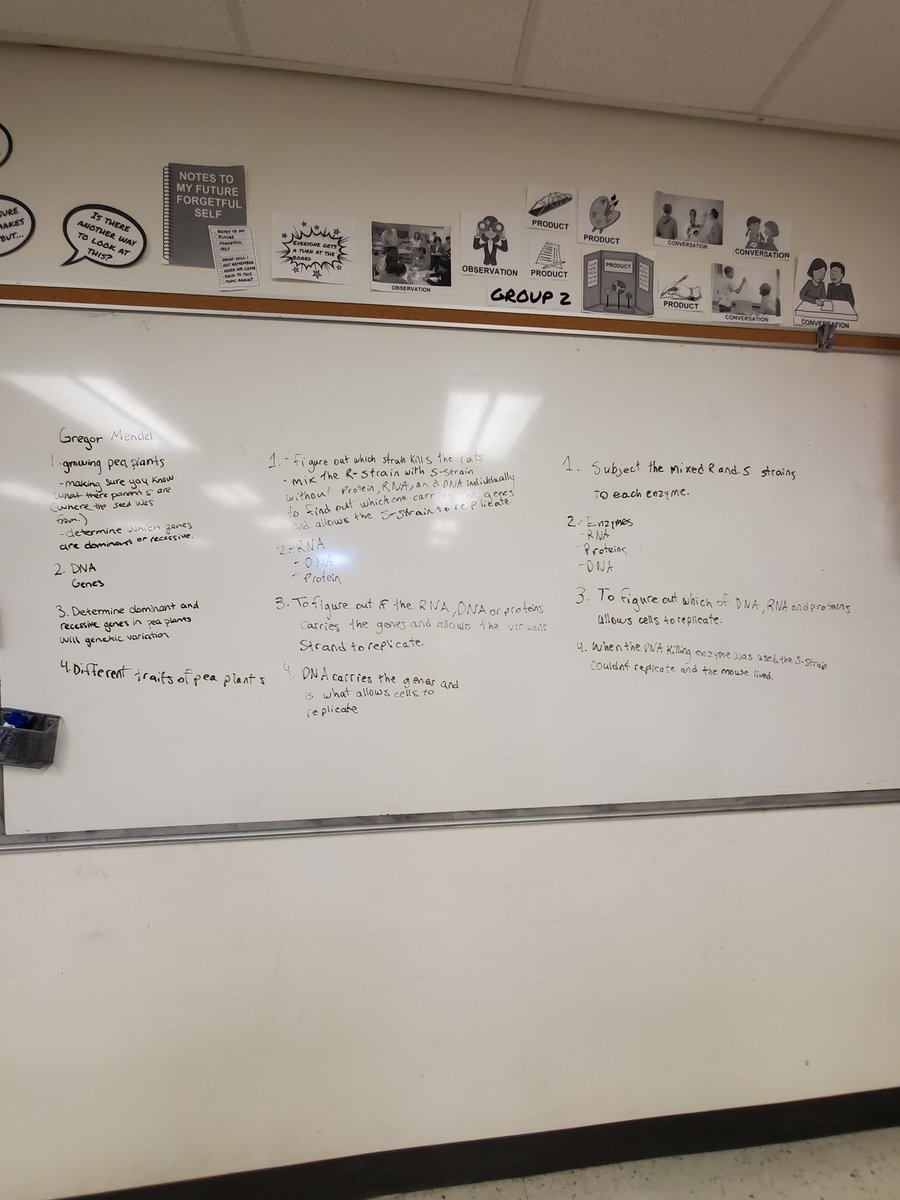 SURE
MAKES
BUT...
IS THERE
ANOTHER WAY
TO LOOK AT
THIS?
NOTES TO
MY FUTURE
FORGETFUL
SELF
NOTES TO MY
FUTURE
FORGETFUL
SELF
WHAT WILL I
NOT REMEMBER
WHEN WE COME
BACK TO THIS
TOPIC AGAIN?
EVERYONE GETS
A TURN AT THE
BOARD
OBSERVATION
OBSERVATION
PRODUCT
PRODUCT
PRODUCT
PRODUCT
PRODUCT
GROUP 2
CONVERSATION
CONVERSATION
CONVERSATION
CONVERSATION
Gregor Mendel
1.-growing pea plants
-making sure you know
what there parents are
(where the seed was
from.)
-determine which genes
are dominant or recessive.
2. DNA
Genes
3. Determine dominant and
recessive genes in pea plants
will genetic variation.
4. Different traits of pea plants
1.-Figure out which strain kills the rats
-mix the R-strain with S-strain
without Protein, RNA, and DNA individually
to find out which one carries the genes
and allows the S-strain to replicate
2.-RNA
-DNA
-Protein
3. To figure out if the RNA, DNA or proteins
carries the genes and allows the
Strand to replicate.
4. DNA carries the genes and
is what allows cells to
replicate
1. Subject the mixed R and S strains
to each enzyme.
2-Enzymes
-RNA
-Proteins
-DNA
3. To figure out which of DNA, RNA and proteins
allows cells to replicate.
4. When the DNA killing enzyme was used the S-strain
couldn't replicate and the mouse lived.